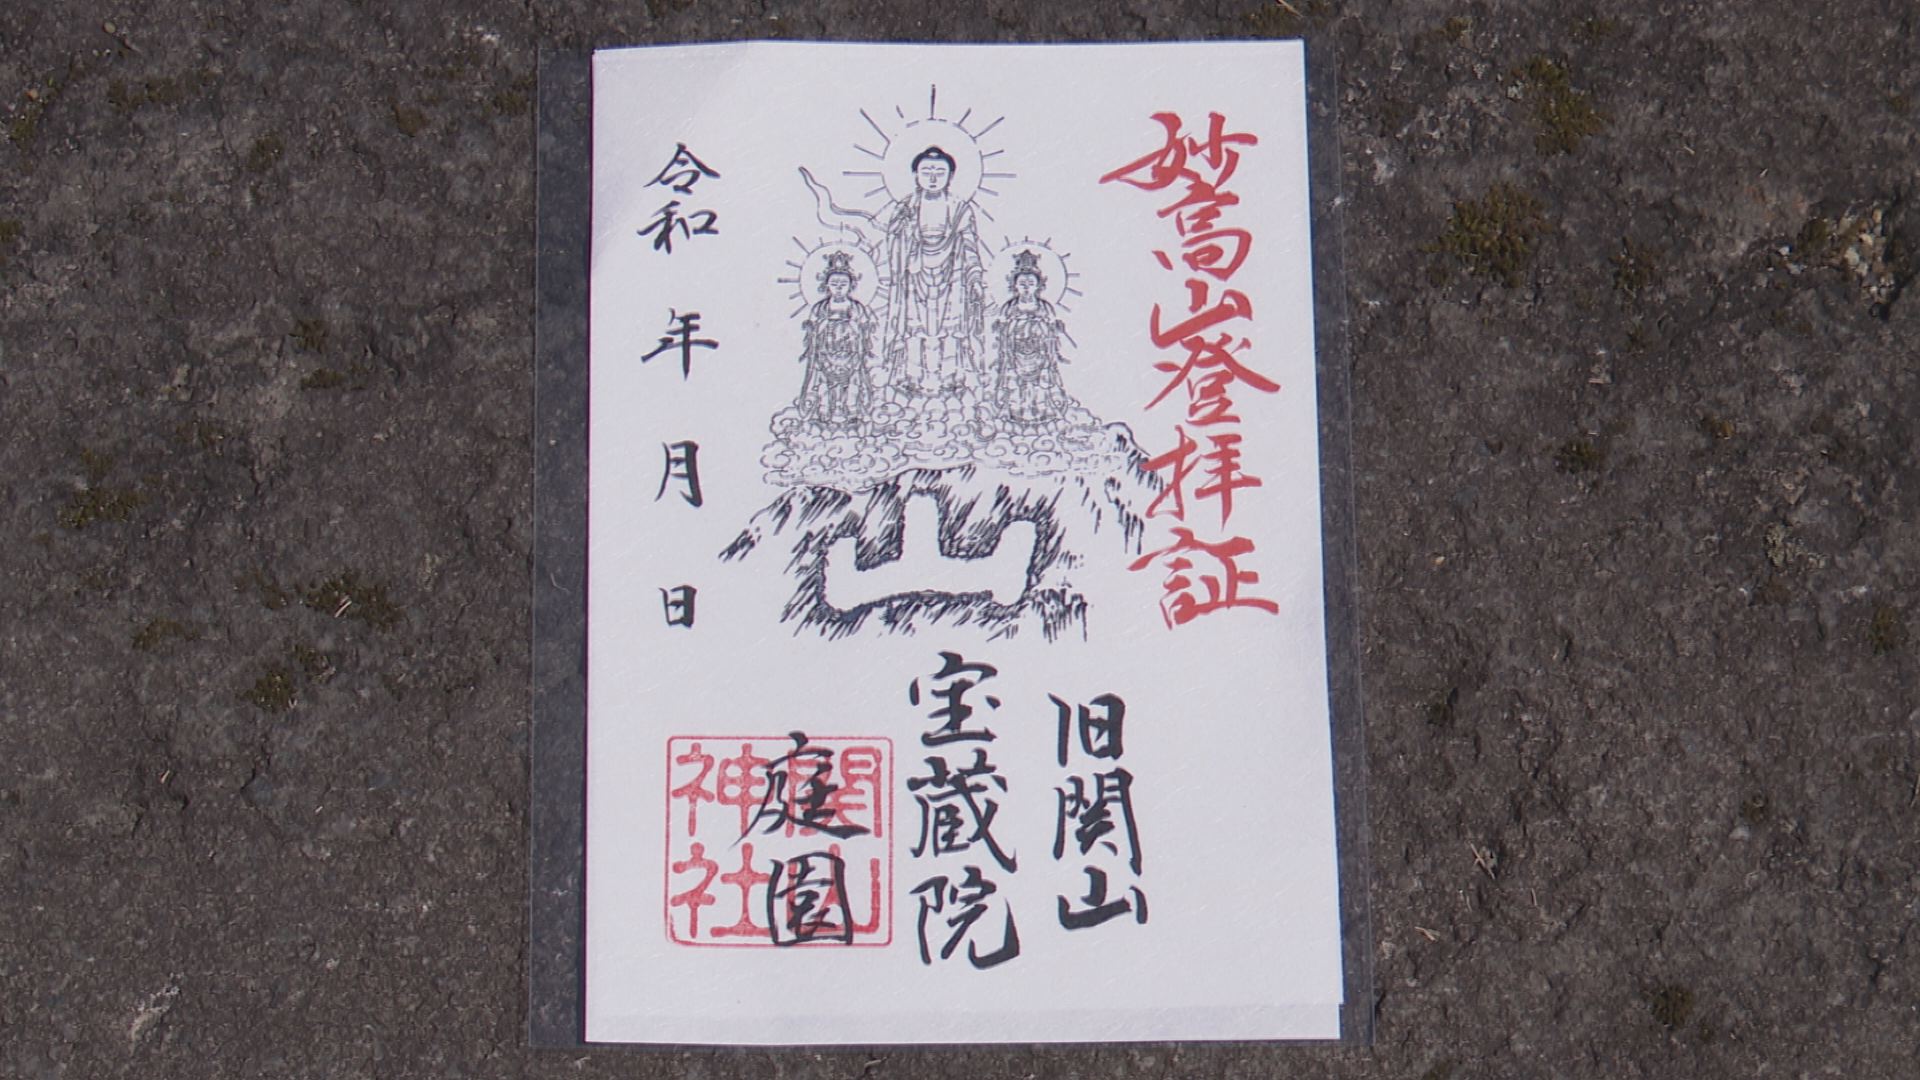 妙高山登拝証
旧関山
宝蔵院
庭園
関山
神社
令和 年 月 日